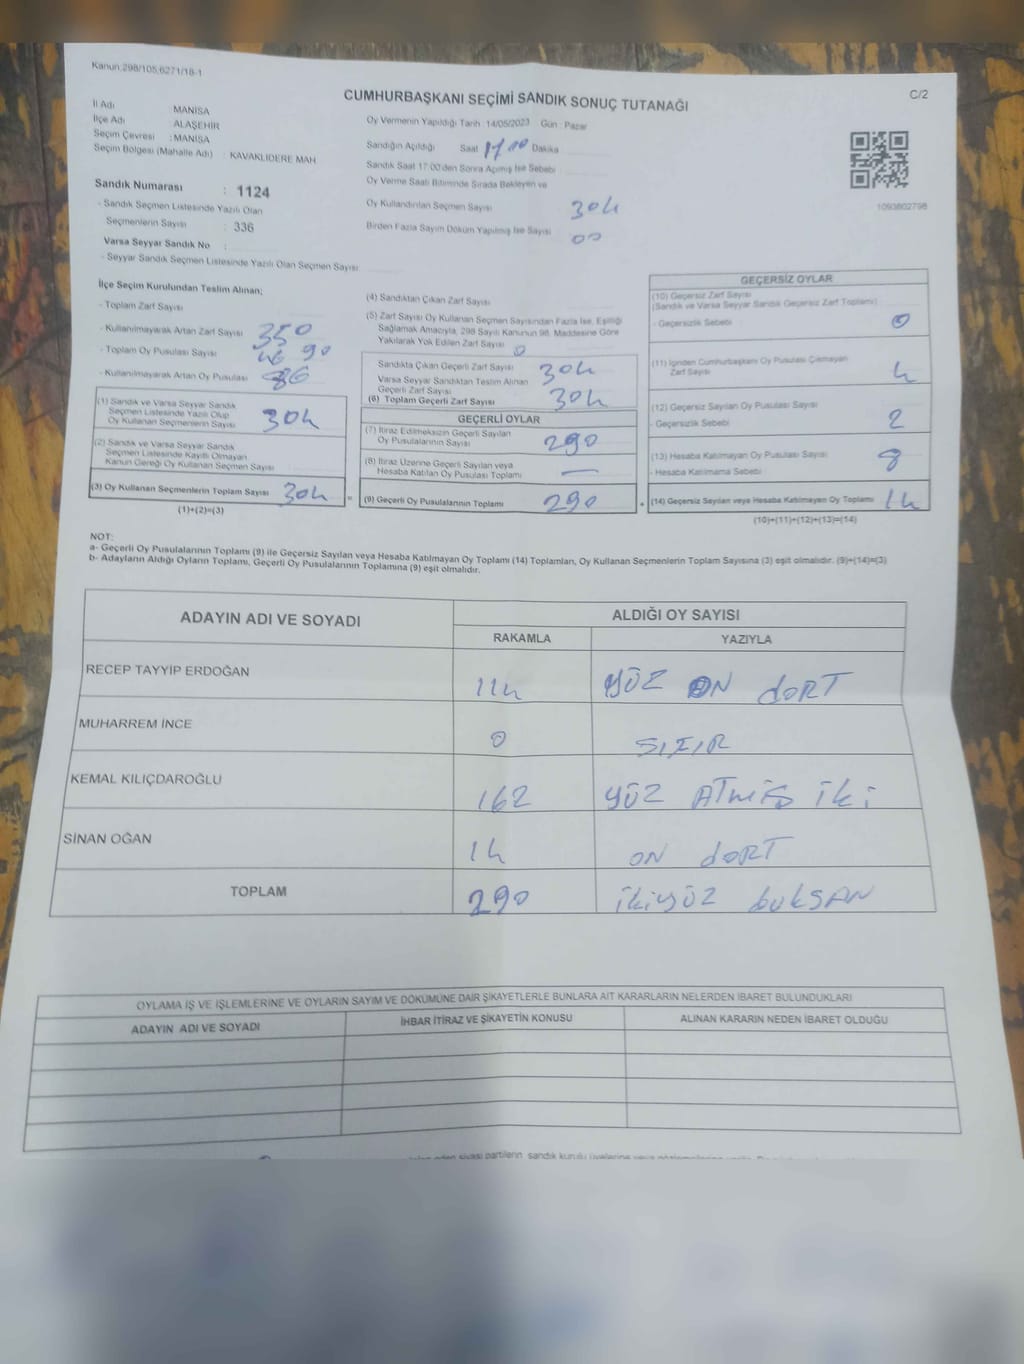 Kanun.298/105,6271/18-1
C/2
CUMHURBAŞKANI SEÇİMİ SANDIK SONUÇ TUTANAĞI
İl Adı MANİSA
İlçe Adı ALAŞEHİR
Seçim Çevresi : MANİSA
Seçim Bölgesi (Mahalle Adı) : KAVAKLIDERE MAH
Sandık Numarası : 1124
- Sandık Seçmen Listesinde Yazılı Olan
Seçmenlerin Sayısı : 336
Varsa Seyyar Sandık No :
- Seyyar Sandık Seçmen Listesinde Yazılı Olan Seçmen Sayısı
Oy Vermenin Yapıldığı Tarih :14/05/2023 Gün : Pazar
Sandığın Açıldığı Saat 17 00 Dakika
Sandık Saat 17:00'den Sonra Açılmış İse Sebebi
Oy Verme Saati Bitiminde Sırada Bekleyen ve
Oy Kullandırılan Seçmen Sayısı 304
Birden Fazla Sayım Döküm Yapılmış İse Sayısı 00
1093802798
İlçe Seçim Kurulundan Teslim Alınan;
- Toplam Zarf Sayısı 350
- Kullanılmayarak Artan Zarf Sayısı 46
- Toplam Oy Pusulası Sayısı 90
- Kullanılmayarak Artan Oy Pusulası 86
(1) Sandık ve Varsa Seyyar Sandık
Seçmen Listesinde Yazılı Olup
Oy Kullanan Seçmenlerin Sayısı 304
(2) Sandık ve Varsa Seyyar Sandık
Seçmen Listesinde Kayıtlı Olmayan
Kanun Gereği Oy Kullanan Seçmen Sayısı
(3) Oy Kullanan Seçmenlerin Toplam Sayısı 304 =
(1)+(2)=(3)
(4) Sandıktan Çıkan Zarf Sayısı
(5) Zarf Sayısı Oy Kullanan Seçmen Sayısından Fazla İse, Eşitliği
Sağlamak Amacıyla, 298 Sayılı Kanunun 98. Maddesine Göre
Yakılarak Yok Edilen Zarf Sayısı 0
Sandıkta Çıkan Geçerli Zarf Sayısı 304
Varsa Seyyar Sandıktan Teslim Alınan
Geçerli Zarf Sayısı
(6) Toplam Geçerli Zarf Sayısı 304
GEÇERLİ OYLAR
(7) İtiraz Edilmeksizin Geçerli Sayılan
Oy Pusulalarının Sayısı 290
(8) İtiraz Üzerine Geçerli Sayılan veya
Hesaba Katılan Oy Pusulası Toplamı —
(9) Geçerli Oy Pusulalarının Toplamı 290 +
GEÇERSİZ OYLAR
(10) Geçersiz Zarf Sayısı
(Sandık ve Varsa Seyyar Sandık Geçersiz Zarf Toplamı)
- Geçersizlik Sebebi : 0
(11) İçinden Cumhurbaşkanı Oy Pusulası Çıkmayan
Zarf Sayısı 4
(12) Geçersiz Sayılan Oy Pusulası Sayısı
- Geçersizlik Sebebi 2
(13) Hesaba Katılmayan Oy Pusulası Sayısı 8
- Hesaba Katılmama Sebebi
(14) Geçersiz Sayılan veya Hesaba Katılmayan Oy Toplamı 14
(10)+(11)+(12)+(13)=(14)
NOT:
a- Geçerli Oy Pusulalarının Toplamı (9) ile Geçersiz Sayılan veya Hesaba Katılmayan Oy Toplamı (14) Toplamları, Oy Kullanan Seçmenlerin Toplam Sayısına (3) eşit olmalıdır. (9)+(14)=(3)
b- Adayların Aldığı Oyların Toplamı, Geçerli Oy Pusulalarının Toplamına (9) eşit olmalıdır.
ADAYIN ADI VE SOYADI ALDIĞI OY SAYISI
RAKAMLA YAZIYLA
RECEP TAYYİP ERDOĞAN 114 YÜZ ON dORT
MUHARREM İNCE 0 SIFIR
KEMAL KILIÇDAROĞLU 162 YÜZ ATMIŞ iki
SİNAN OĞAN 14 ON dORT
TOPLAM 290 ikiyÜZ DUKSAN
OYLAMA İŞ VE İŞLEMLERİNE VE OYLARIN SAYIM VE DÖKÜMÜNE DAİR ŞİKAYETLERLE BUNLARA AİT KARARLARIN NELERDEN İBARET BULUNDUKLARI
ADAYIN ADI VE SOYADI İHBAR İTİRAZ VE ŞİKAYETİN KONUSU ALINAN KARARIN NEDEN İBARET OLDUĞU